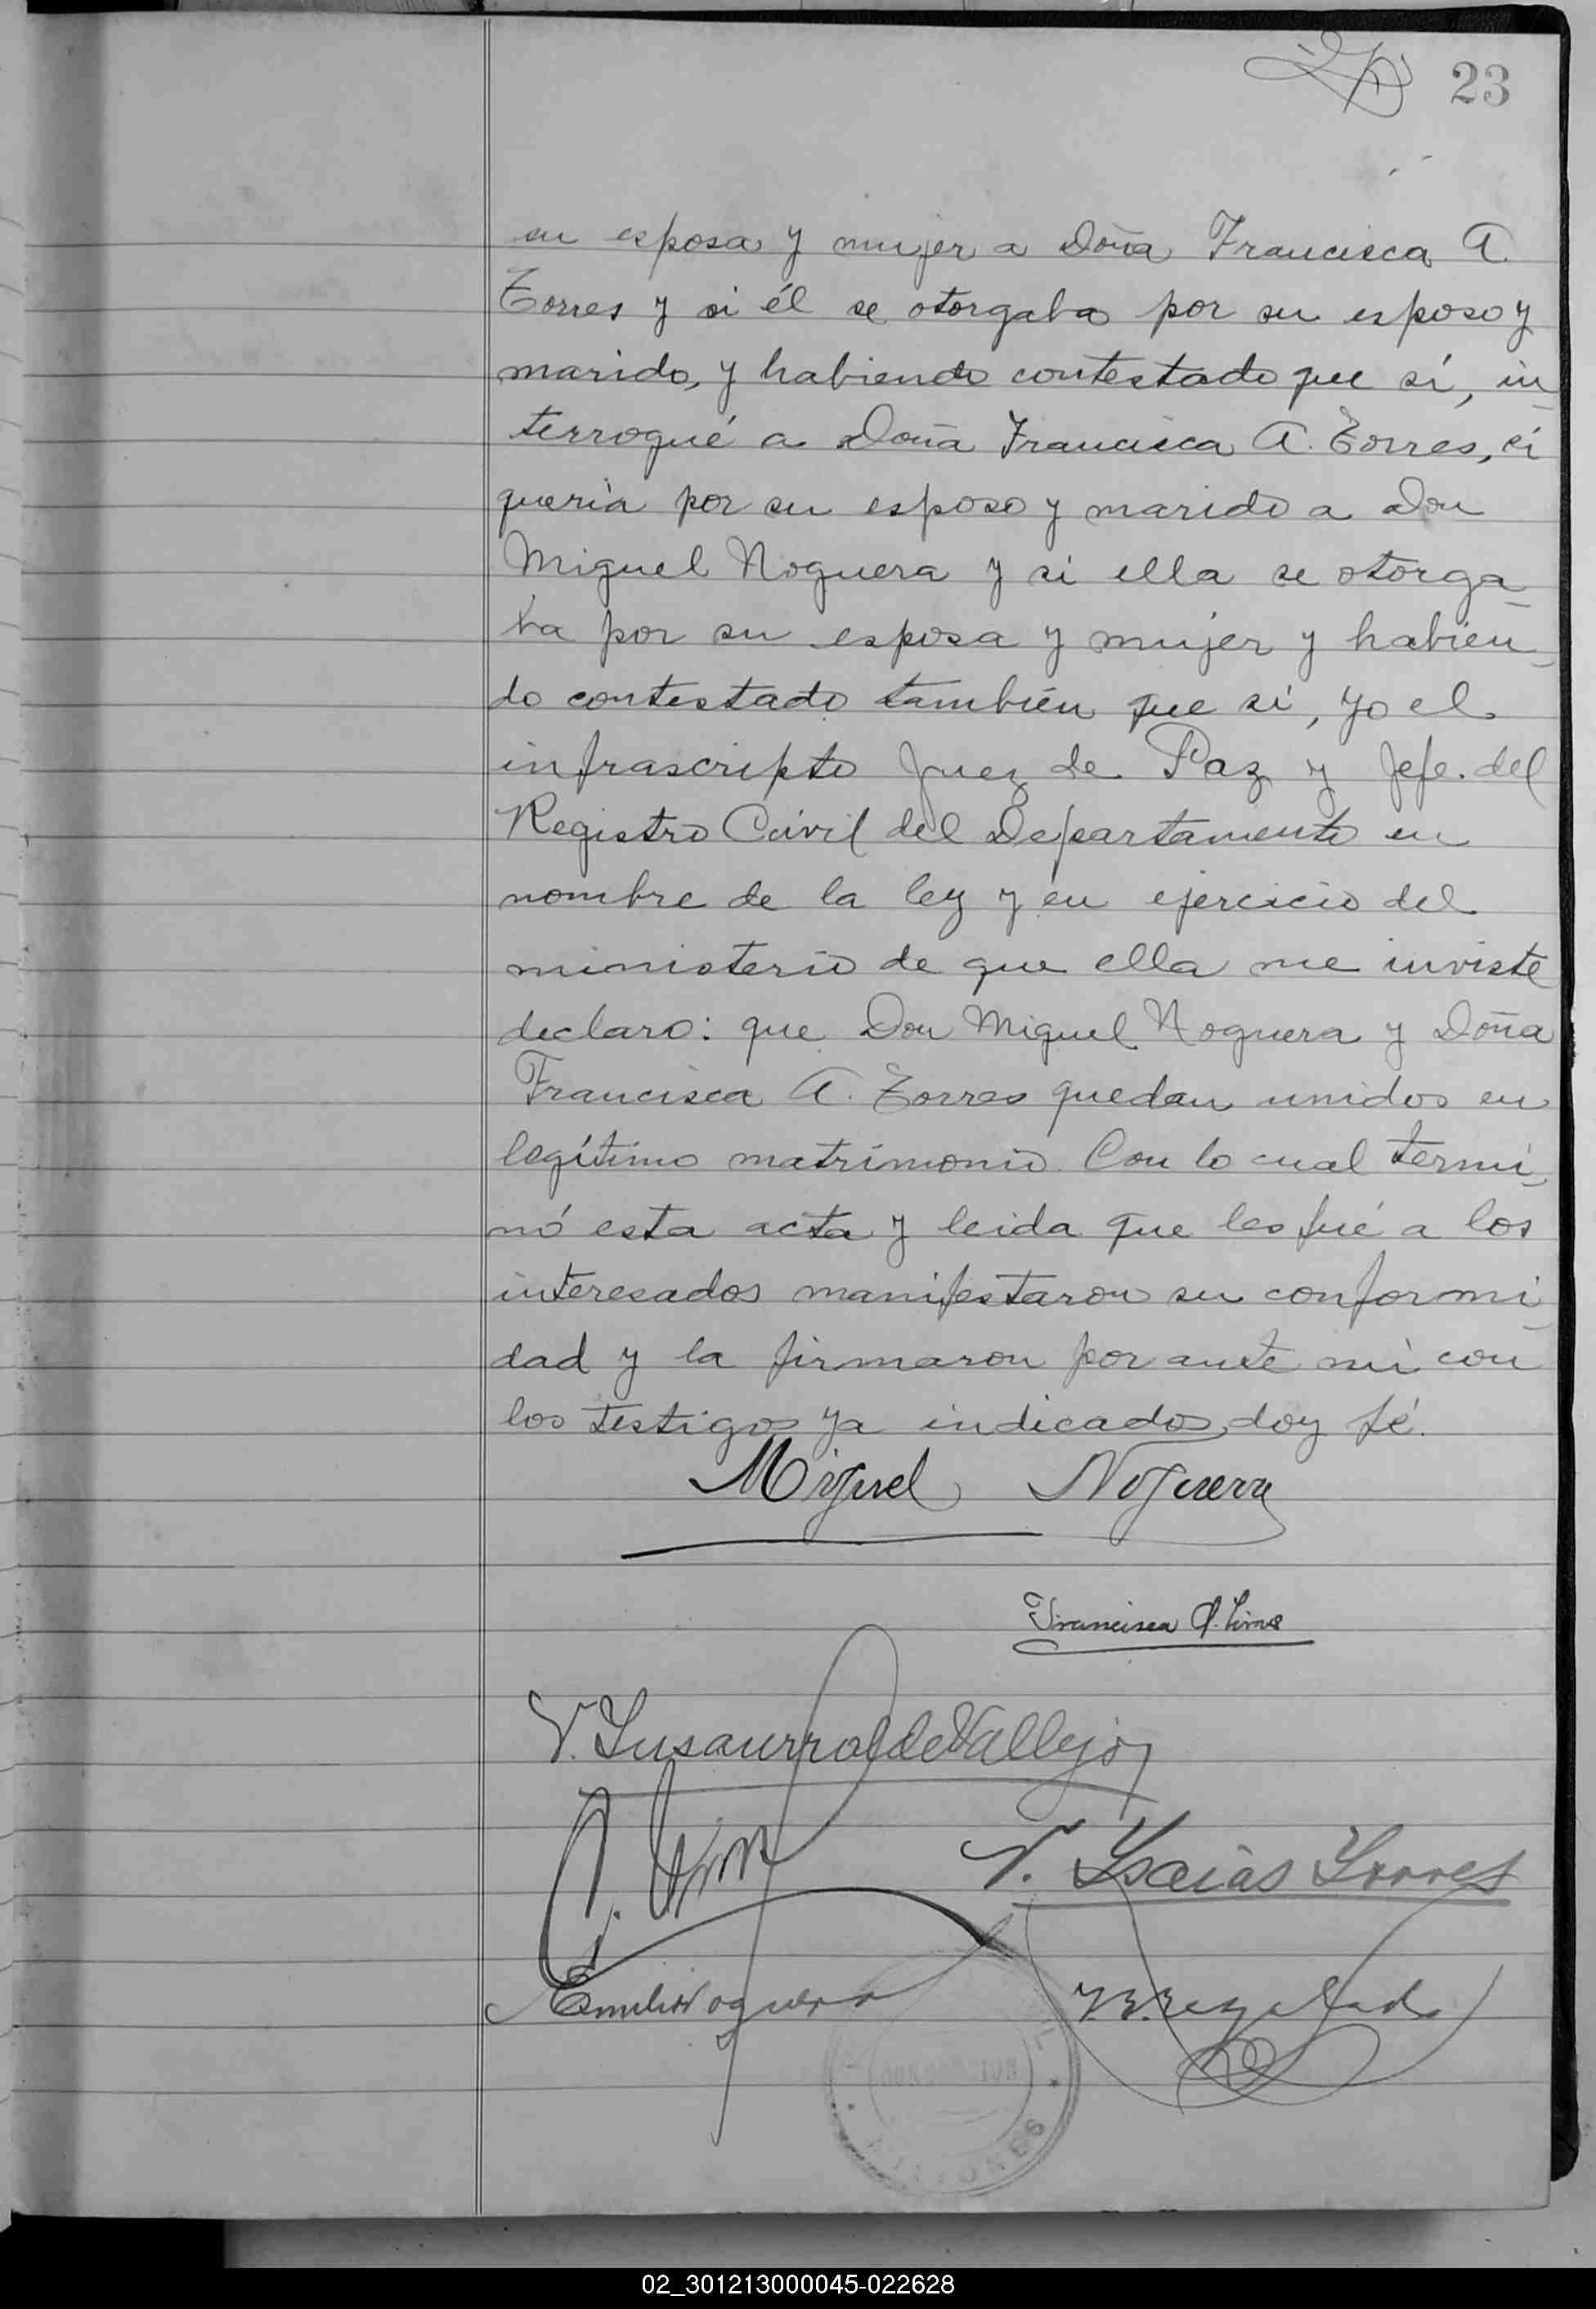 23
su esposa y mujer a Doña Francisca A.
Torres y si él se otorgaba por su esposo y
marido, y habiendo contestado que sí, in
terrogué a Doña Francisca A. Torres, si
quería por su esposo y marido a Don
Miguel Noguera y si ella se otorga
ba por su esposa y mujer y habien
do contestado también que sí, yo el
infrascripto Juez de Paz y Jefe del
Registro Civil del Departamento en
nombre de la ley y en ejercicio del
ministerio de que ella me inviste
declaro: que Don Miguel Noguera y Doña
Francisca A. Torres quedan unidos en
legítimo matrimonio. Con lo cual termi
nó esta acta y leida que les fué a los
interesados manifestaron su conformi
dad y la firmaron por ante mi con
los testigos ya indicados, doy fé.
Miguel Noguera
Francisca A. Torres
V. Susaurralde Vallejos
N. Ysaias Torres
Emilio Noguera
02_301213000045-022628